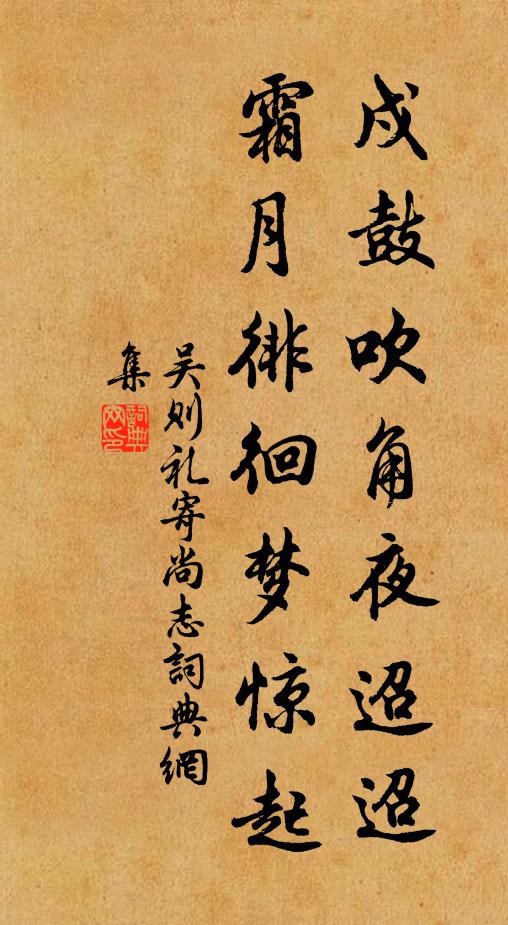 戍鼓吹角夜迢迢
霜月徘徊梦惊起
吴则礼寄尚志詞典網
集
詞典
网印